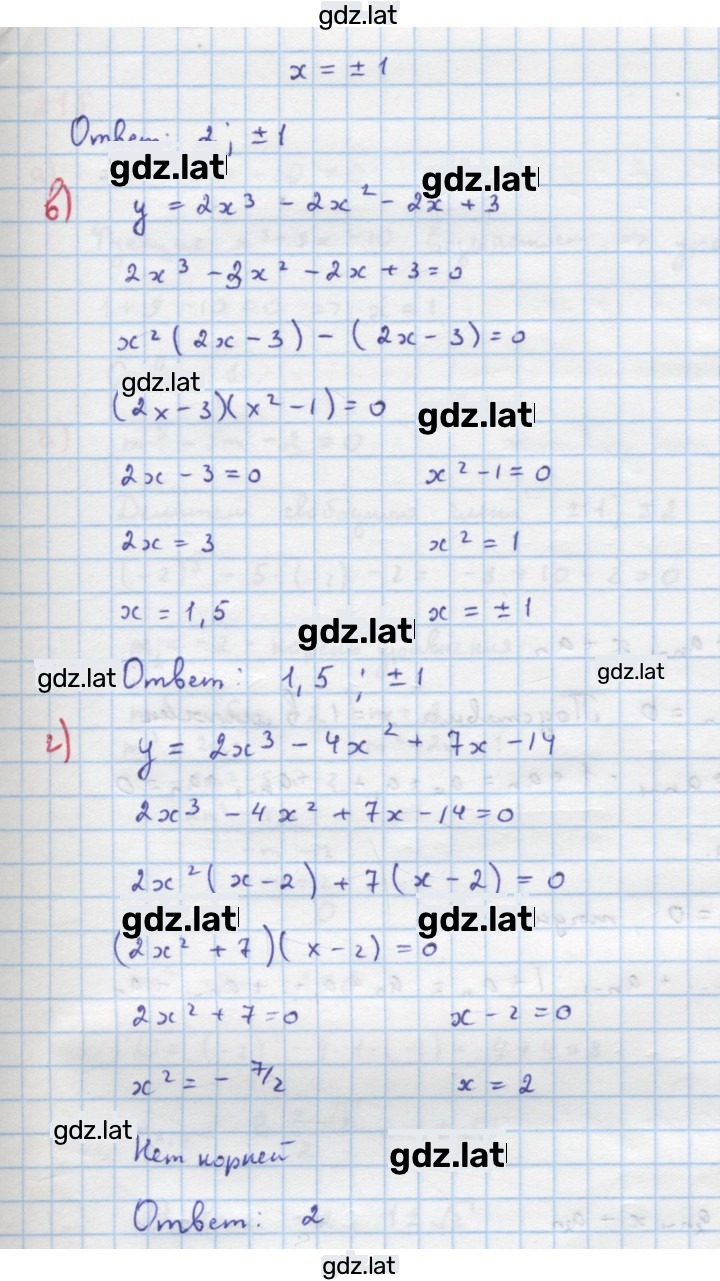 gdz.lat
x = ± 1
Ответ: 2; ± 1
gdz.lat gdz.lat
в) y = 2x³ - 2x² - 2x + 3
2x³ - 3x² - 2x + 3 = 0
x² (2x - 3) - (2x - 3) = 0
gdz.lat
(2x - 3)(x² - 1) = 0 gdz.lat
2x - 3 = 0 x² - 1 = 0
2x = 3 x² = 1
x = 1,5 x = ± 1
gdz.lat
gdz.lat Ответ: 1,5; ± 1 gdz.lat
г) y = 2x³ - 4x² + 7x - 14
2x³ - 4x² + 7x - 14 = 0
2x² (x - 2) + 7 (x - 2) = 0
gdz.lat gdz.lat
(2x² + 7)(x - 2) = 0
2x² + 7 = 0 x - 2 = 0
x² = - 7/2 x = 2
gdz.lat
Нет корней gdz.lat
Ответ: 2
gdz.lat